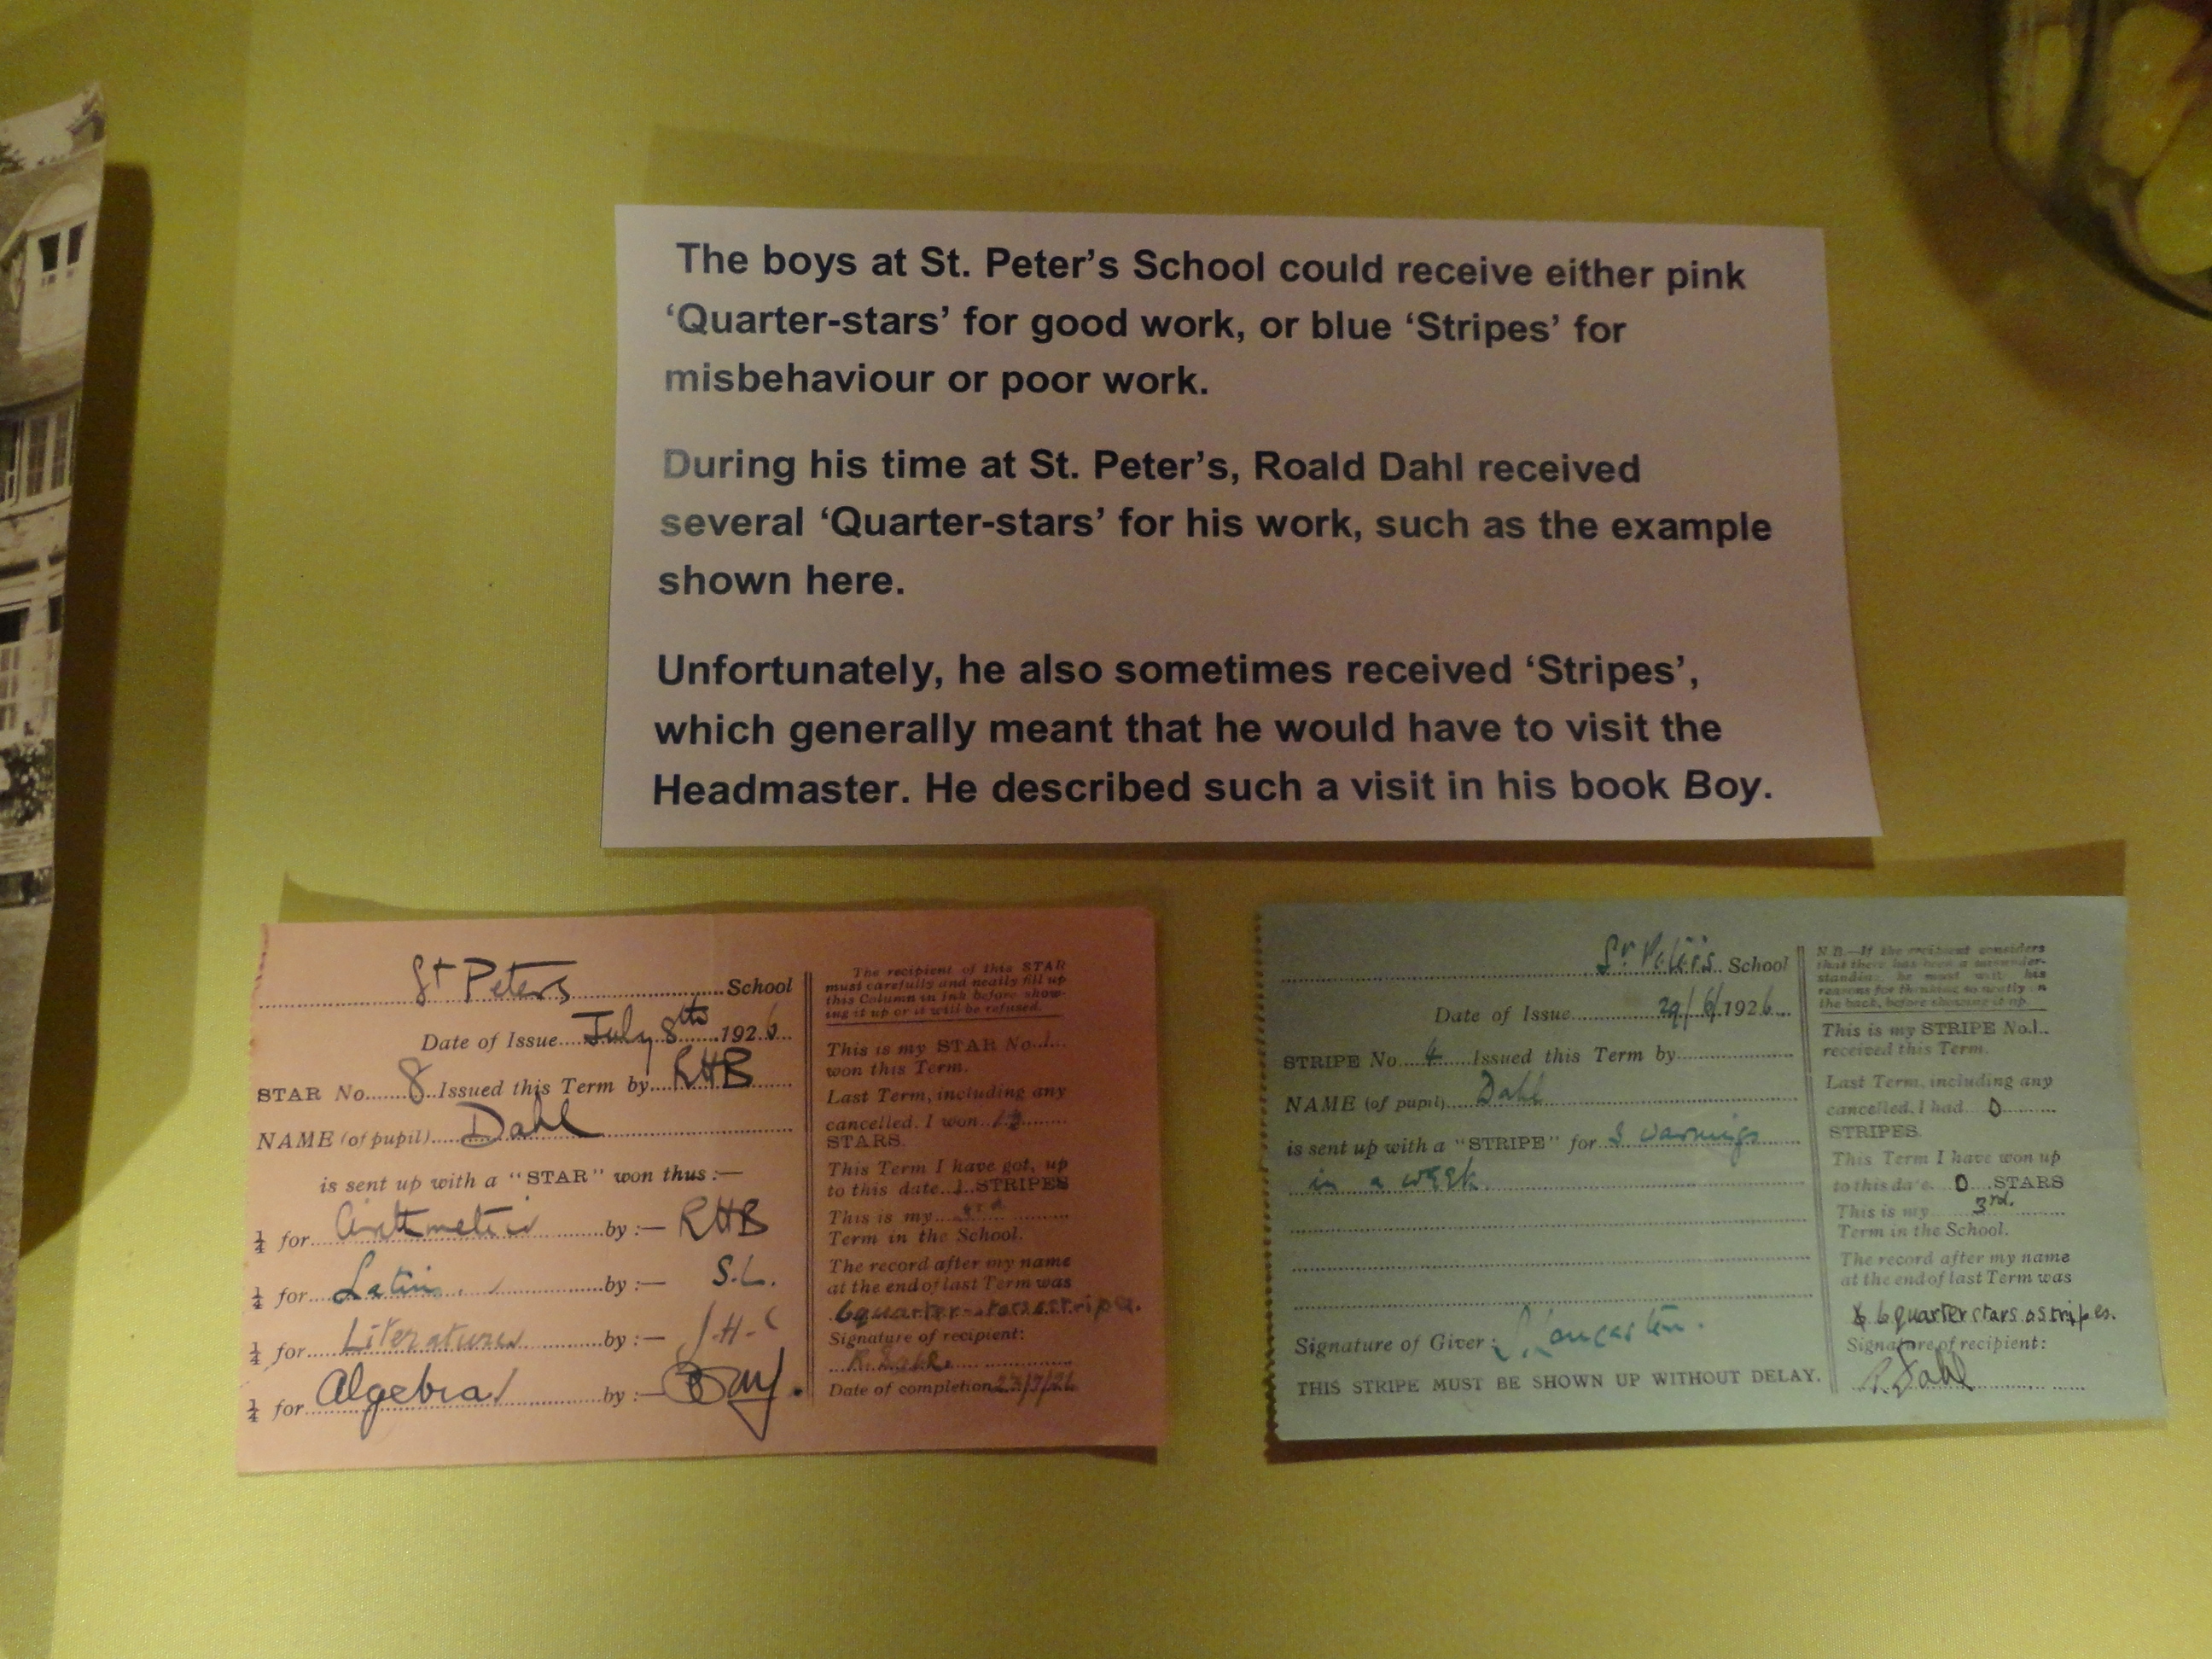 The boys at St. Peter's School could receive either pink
'Quarter-stars' for good work, or blue 'Stripes' for
misbehaviour or poor work.
During his time at St. Peter's, Roald Dahl received
several 'Quarter-stars' for his work, such as the example
shown here.
Unfortunately, he also sometimes received 'Stripes',
which generally meant that he would have to visit the
Headmaster. He described such a visit in his book Boy.
St Peters School
Date of Issue July 8th 1926
STAR No. 8 Issued this Term by RHB
NAME (of pupil) Dahl
is sent up with a "STAR" won thus:—
¼ for Arithmetic by:— RHB
¼ for Latin by:— S.L.
¼ for Literature by:—
¼ for Algebra by:—
The recipient of this STAR
must carefully and neatly fill up
this Column in ink before show-
ing it up or it will be refused.
This is my STAR No. 1
won this Term.
Last Term, including any
cancelled. I won
STARS.
This Term I have got, up
to this date 1 STRIPES
This is my 3rd
Term in the School.
The record after my name
at the end of last Term was
6 quarter-stars
Signature of recipient:
R. Dahl
Date of completion 23/7/26
St Peters School
Date of Issue 29/6/1926
STRIPE No 4 Issued this Term by
NAME (of pupil) Dahl
is sent up with a "STRIPE" for 3 warnings
in a week.
Signature of Giver: S. Lancaster.
THIS STRIPE MUST BE SHOWN UP WITHOUT DELAY.
N.B.—If the recipient considers
that there has been a misunder-
standing he must write his
reasons for thinking so neatly on
the back, before showing it up.
This is my STRIPE No. 1
received this Term.
Last Term, including any
cancelled. I had 0
STRIPES.
This Term I have won up
to this date 0 STARS
This is my 3rd.
Term in the School.
The record after my name
at the end of last Term was
6 quarter stars 0 stripes.
Signature of recipient:
R. Dahl